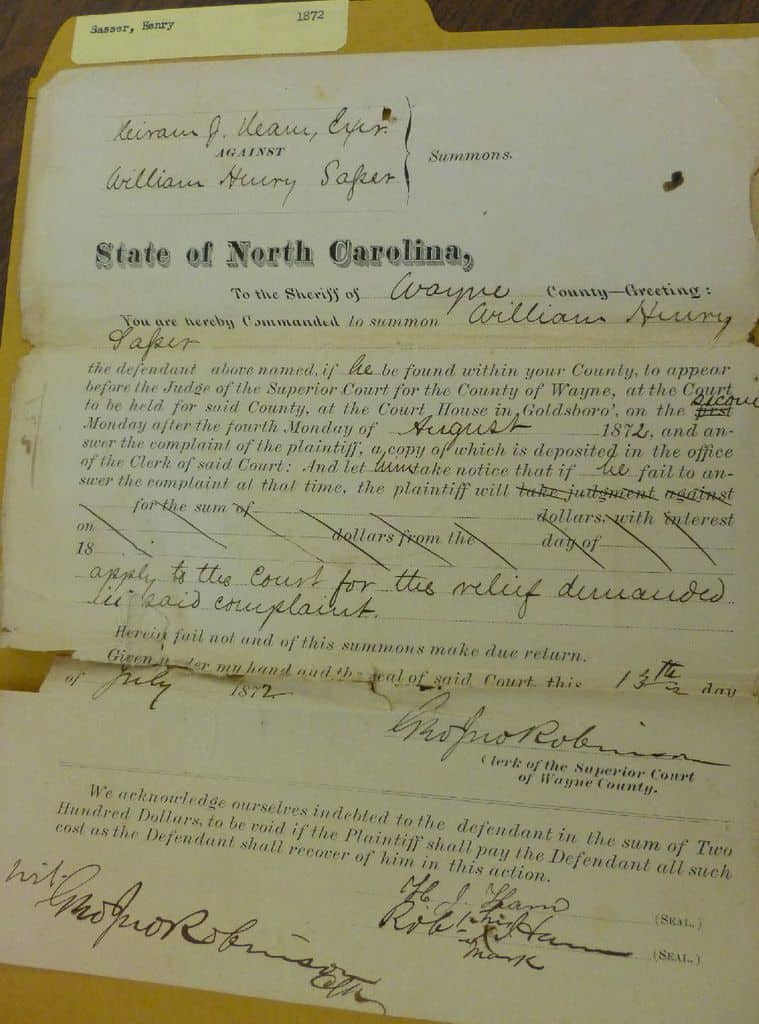 Sasser, Henry 1872
Hiram J. Ham, Exr.
AGAINST
William Henry Saſser
Summons.
State of North Carolina,
To the Sheriff of Wayne County—Greeting:
You are hereby Commanded to summon William Henry
Saſser
the defendant above named, if he be found within your County, to appear
before the Judge of the Superior Court for the County of Wayne, at the Court
to be held for said County, at the Court House in Goldsboro', on the first second
Monday after the fourth Monday of August 1872, and an-
swer the complaint of the plaintiff, a copy of which is deposited in the office
of the Clerk of said Court: And let him take notice that if he fail to an-
swer the complaint at that time, the plaintiff will take judgment against
for the sum of dollars, with interest
on dollars from the day of
18
apply to the Court for the relief demanded
in said complaint.
Herein fail not and of this summons make due return.
Given under my hand and the seal of said Court, this 13th day
of July 1872
Clerk of the Superior Court
of Wayne County.
We acknowledge ourselves indebted to the defendant in the sum of Two
Hundred Dollars, to be void if the Plaintiff shall pay the Defendant all such
cost as the Defendant shall recover of him in this action.
H. J. Ham (SEAL.)
Robt his X Ham (SEAL.)
mark
wit.
Robinson
Clk